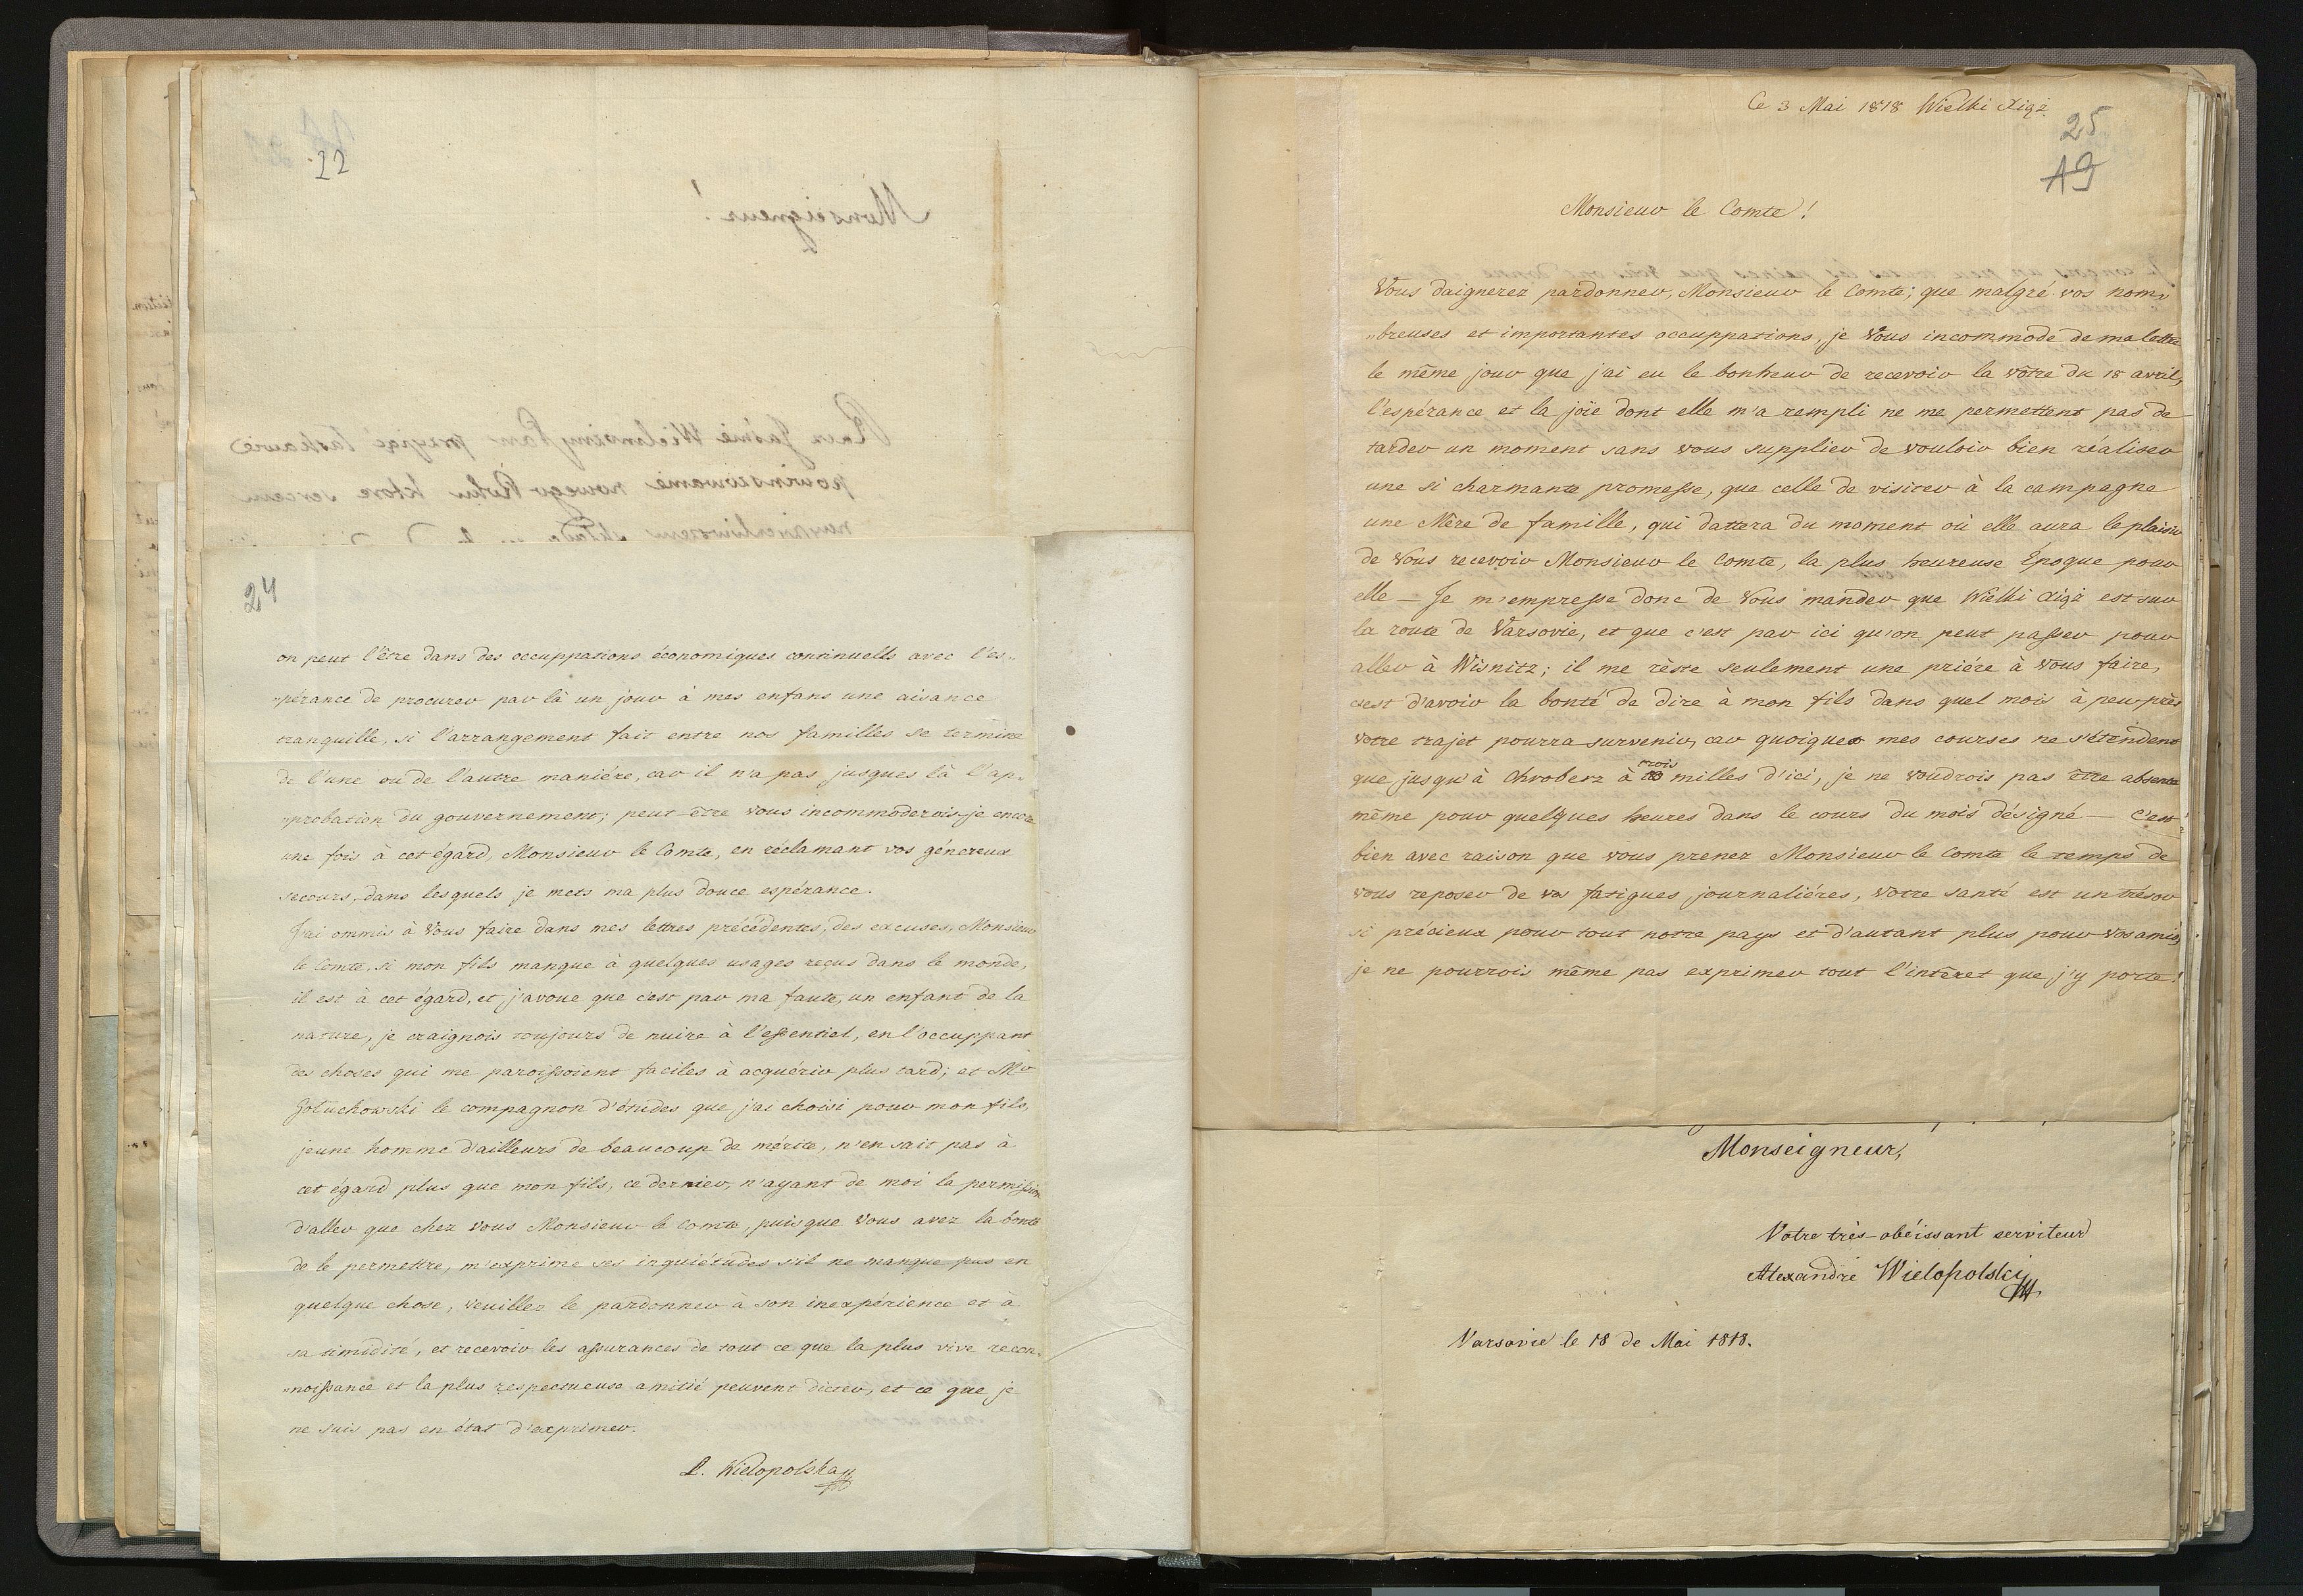 22
Monseigneur!
24
on peut l'être dans des occuppations économiques continuells avec l'es„
„pérance de procurer par là un jour à mes enfans une aisance
tranquille, si l'arrangement fait entre nos familles se termine
de l'une ou de l'autre maniére, car il n'a pas jusques là l'ap„
„probation du gouvernement; peut-être vous incommoderois-je encore
une fois à cet égard, Monsieur le Comte, en réclamant vos généreux
secours, dans lesquels je mets ma plus douce espérance.
J'ai ommis à Vous faire dans mes lettres précédentes, des excuses, Monsieur
le Comte, si mon fils manque à quelques usages reçus dans le monde,
il est à cet égard, et j'avoue que c'est par ma faute, un enfant de la
nature, je craignois toujours de nuire à l'essentiel, en l'occuppant
des choses qui me paroissoient faciles à acquérir plus tard; et Mr
Gołuchowski le compagnon d'études que j'ai choisi pour mon fils,
jeune homme d'ailleurs de beaucoup de mérite, n'en sait pas à
cet égard plus que mon fils, ce dernier, n'ayant de moi la permission
d'aller que chez Vous Monsieur le Comte, puisque Vous avez la bonté
de le permettre, m'exprime ses inquiétudes s'il ne manque pas en
quelque chose, veuillez le pardonner à son inexpérience et à
sa timidité, et recevoir les assurances de tout ce que la plus vive recon„
„noissance et la plus respectueuse amitié peuvent dicter, et ce que je
ne suis pas en état d'exprimer.
L. Wielopolska
Ce 3 Mai 1818 Wielki Xiąż
25
19
Monsieur le Comte!
Vous daignerez pardonner, Monsieur le Comte; que malgré vos nom„
„breuses et importantes occuppations, je Vous incommode de ma lettre
le même jour que j'ai eu le bonheur de recevoir la vôtre du 18 avril,
l'espérance et la joïe dont elle m'a rempli ne me permettent pas de
tarder un moment sans vous supplier de vouloir bien réaliser
une si charmante promesse, que celle de visiter à la campagne
une Mère de famille, qui dattera du moment où elle aura le plaisir
de Vous recevoir Monsieur le Comte, la plus heureuse Époque pour
elle — Je m'empresse donc de Vous mander que Wielki Xiąż est sur
la route de Varsovie, et que c'est par ici qu'on peut passer pour
aller à Wisnitz; il me rèste seulement une priére à vous faire,
c'est d'avoir la bonté de dire à mon fils dans quel mois à peu-près
votre trajet pourra survenir, car quoique mes courses ne s'étendent
que jusqu'à Chroberz à trois milles d'ici, je ne voudrois pas être absente
même pour quelques heures dans le cours du mois désigné — C'est
bien avec raison que vous prenez Monsieur le Comte le temps de
vous reposer de vos fatigues journaliéres, votre santé est un trésor
si précieux pour tout notre pays et d'autant plus pour vos amis,
je ne pourrois même pas exprimer tout l'intêret que j'y porte!
Monseigneur,
Votre très-obéissant serviteur
Alexandre Wielopolski
Varsovie le 18 de Mai 1818.